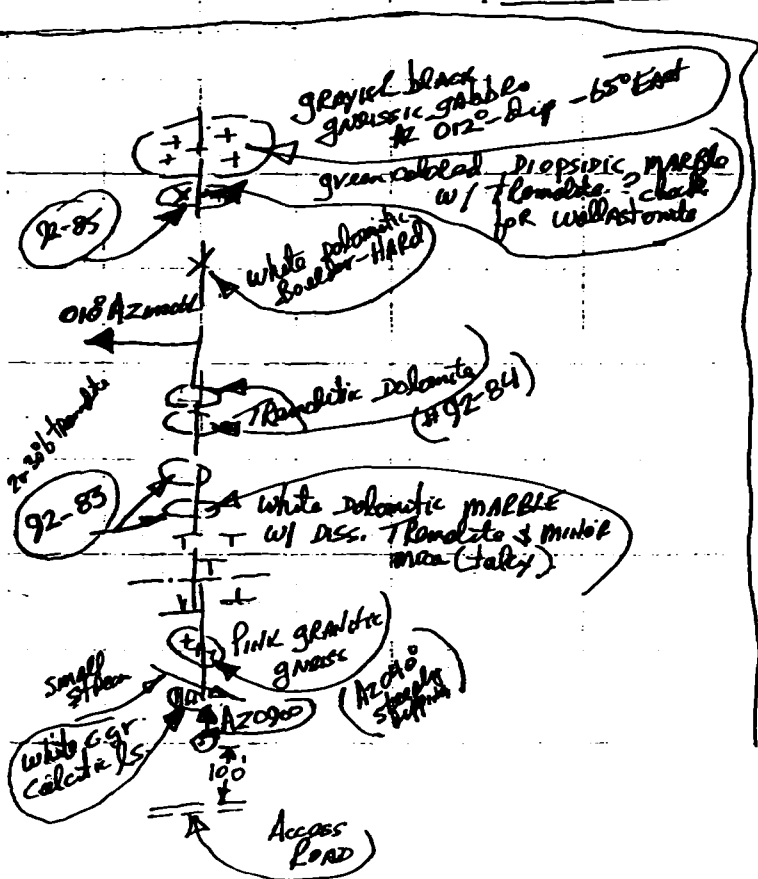 grayish black
gneissic gabbro
Az 012° - dip - 65° East
green colored DIOPSIDIC MARBLE
w/ Tremolite - ? check
for Wollastonite
92-85
white Dolomitic
Boulder - HARD
018° Azimuth
Tremolitic Dolomite
(#92-84)
tremolite
92-83
White Dolomitic MARBLE
w/ Diss. Tremolite & minor
mica (talc)
T T
T
PINK GRANITIC
gneiss
small
stream
(Az 040°
steeply
dipping)
AZ 090°
white c.gr.
Calcitic ls.
100'
Access
ROAD